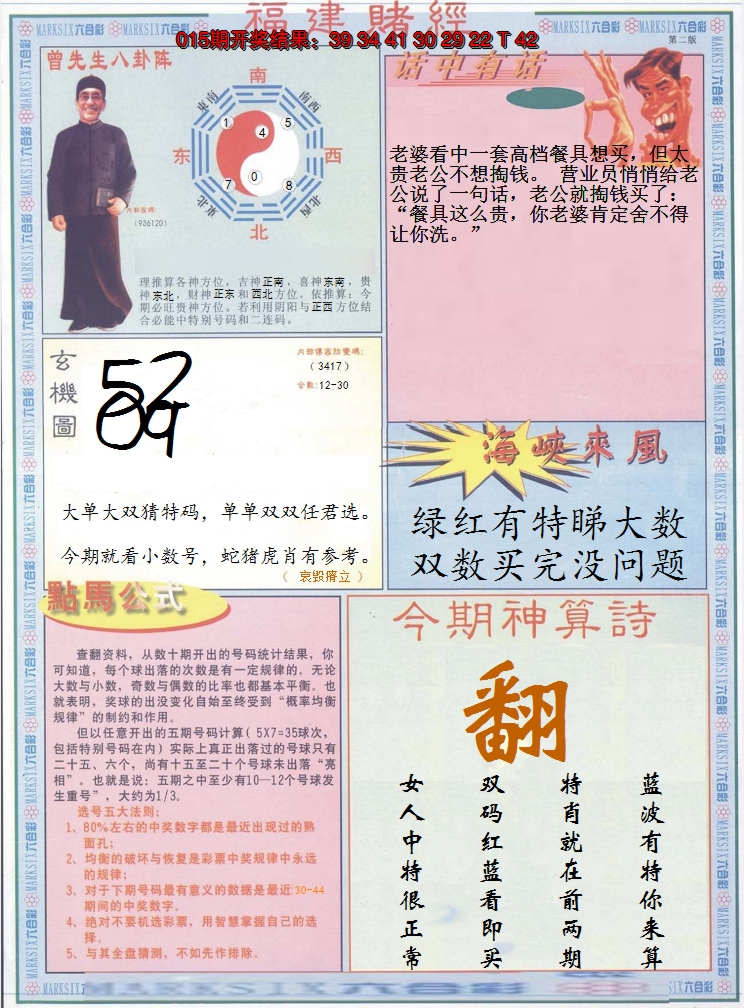 福建賭經
015期开奖结果：39 34 41 30 29 22 T 42
第二版
曾先生八卦阵
南
東南
南西
东
西
東北
北西
北
1
4
5
7
0
8
內部密碼:
(936120)
理推算各神方位，吉神正南，喜神东南，贵
神东北，财神正东和西北方位。依推算：今
期必旺贵神方位。若利用阴阳与正西方位结
合必能中特别号码和二连码。
话中有话
老婆看中一套高档餐具想买，但太
贵老公不想掏钱。 营业员悄悄给老
公说了一句话，老公就掏钱买了：
“餐具这么贵，你老婆肯定舍不得
让你洗。”
玄機圖
內部傳密防僞碼:
(3417)
合数:12-30
大单大双猜特码，单单双双任君选。
今期就看小数号，蛇猪虎肖有参考。
（ 哀毁瘠立 ）
海峽來風
绿红有特睇大数
双数买完没问题
點馬公式
查翻资料，从数十期开出的号码统计结果，你
可知道，每个球出落的次数是有一定规律的。无论
大数与小数，奇数与偶数的比率也都基本平衡。也
就表明，奖球的出没变化自始至终受到“概率均衡
规律”的制约和作用。
但以任意开出的五期号码计算( 5X7=35球次，
包括特别号码在内) 实际上真正出落过的号球只有
二十五、六个，尚有十五至二十个号球未出落“亮
相”。也就是说：五期之中至少有10—12个号球发
生重号”，大约为1/3。
选号五大法则：
1、80%左右的中奖数字都是最近出现过的熟
面孔；
2、均衡的破坏与恢复是彩票中奖规律中永远
的规律；
3、对于下期号码最有意义的数据是最近 30-44
期间的中奖数字。
4、绝对不要机选彩票，用智慧掌握自己的选
择。
5、与其全盘猜测，不如先作排除。
今期神算詩
翻
蓝波有特你来算
特肖就在前两期
双码红蓝看即买
女人中特很正常
MARKSIX六合彩